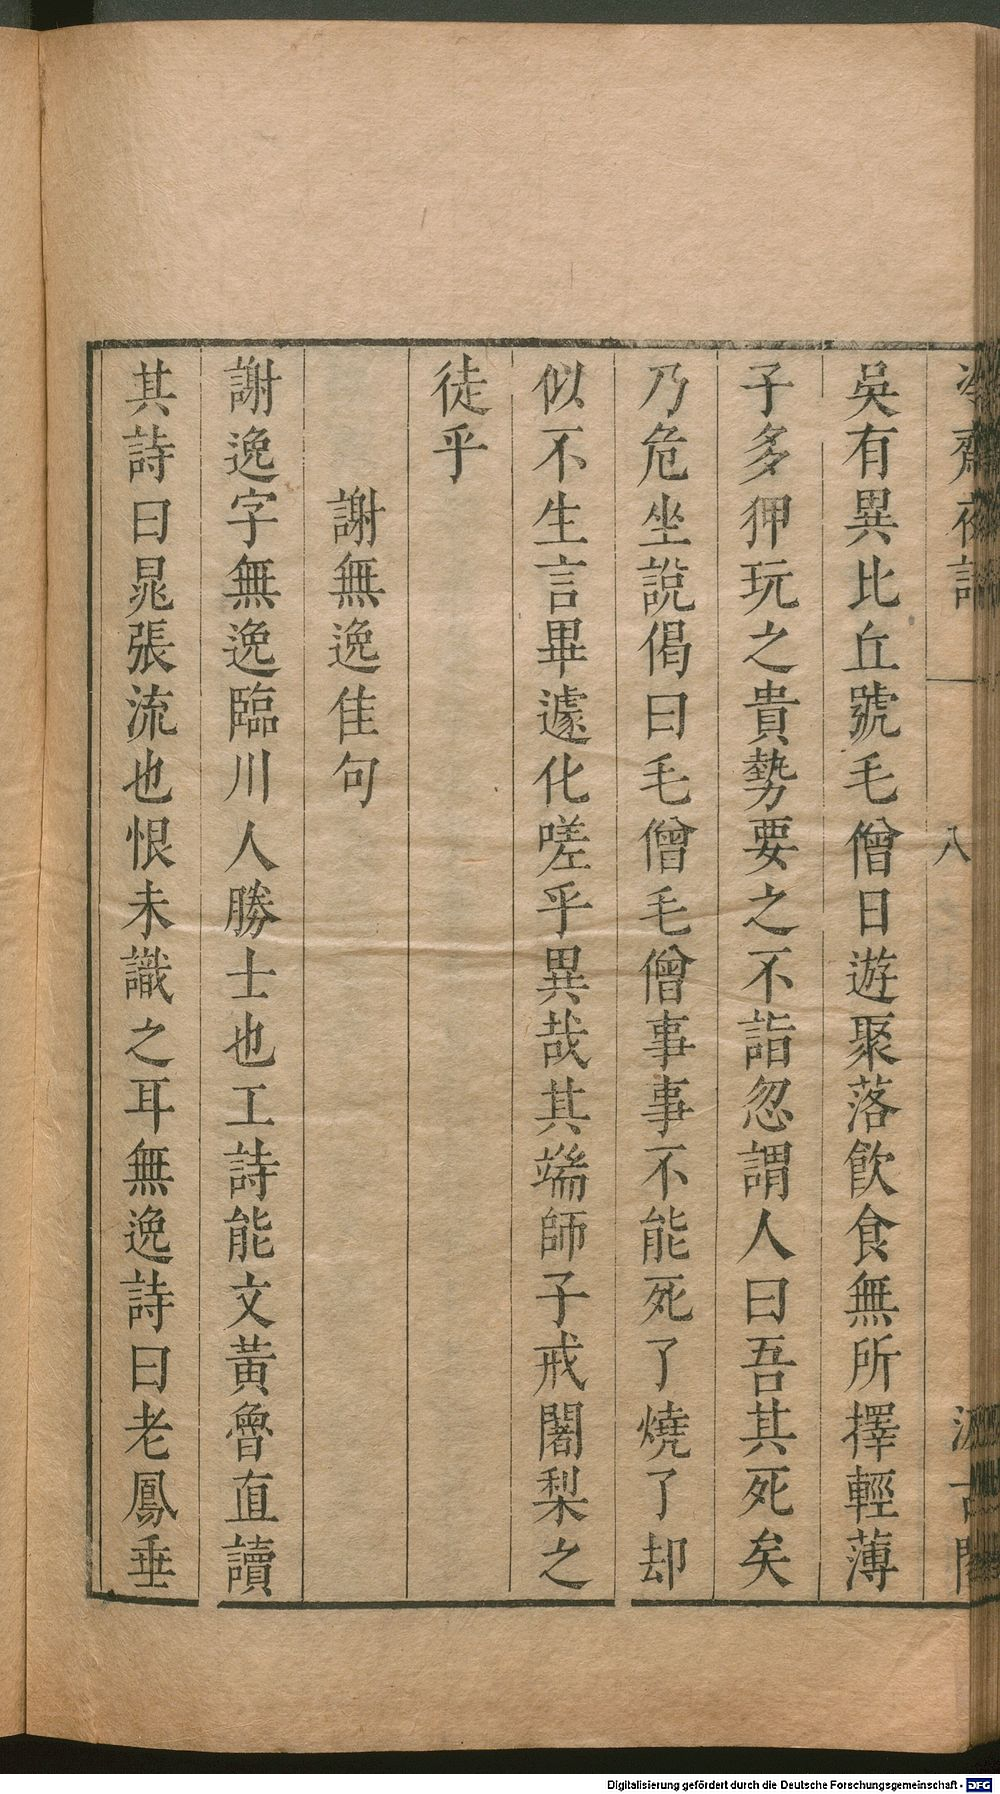 冷齋夜話
八
汲古閣
吳有異比丘號毛僧日遊聚落飲食無所擇輕薄
子多狎玩之貴勢要之不詣忽謂人曰吾其死矣
乃危坐説偈曰毛僧毛僧事事不能死了燒了却
似不生言畢遽化嗟乎異哉其端師子戒闍梨之
徒乎
謝無逸佳句
謝逸字無逸臨川人勝士也工詩能文黃魯直讀
其詩曰晁張流也恨未識之耳無逸詩曰老鳳垂
Digitalisierung gefördert durch die Deutsche Forschungsgemeinschaft - DFG